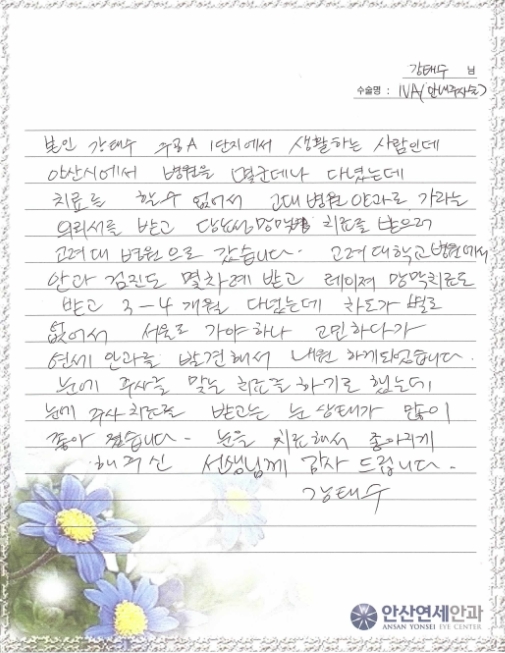 강태수 님
수술명 : IVA(안내주사술)
본인 강태수 주공A 1단지에서 생활하는 사람인데
안산시에서 병원을 몇군데나 다녔는데
치료를 할수 없어서 고대병원 안과로 가라는
의뢰서를 받고 당뇨성망막증 치료를 받으러
고려대 병원으로 갔습니다. 고려대학교병원에서
안과 검진도 몇차례 받고 레이져 망막치료도
받고 3-4 개월 다녔는데 차도가 별로
없어서 서울로 가야하나 고민하다가
연세 안과를 발견해서 내원 하게되었습니다.
눈에 주사를 맞는 치료를 하기로 했는데
눈에 주사 치료를 받고는 눈 상태가 많이
좋아 졌습니다. 눈을 치료해서 좋아지게
해주신 선생님께 감사 드립니다.
강태수
안산연세안과
ANSAN YONSEI EYE CENTER